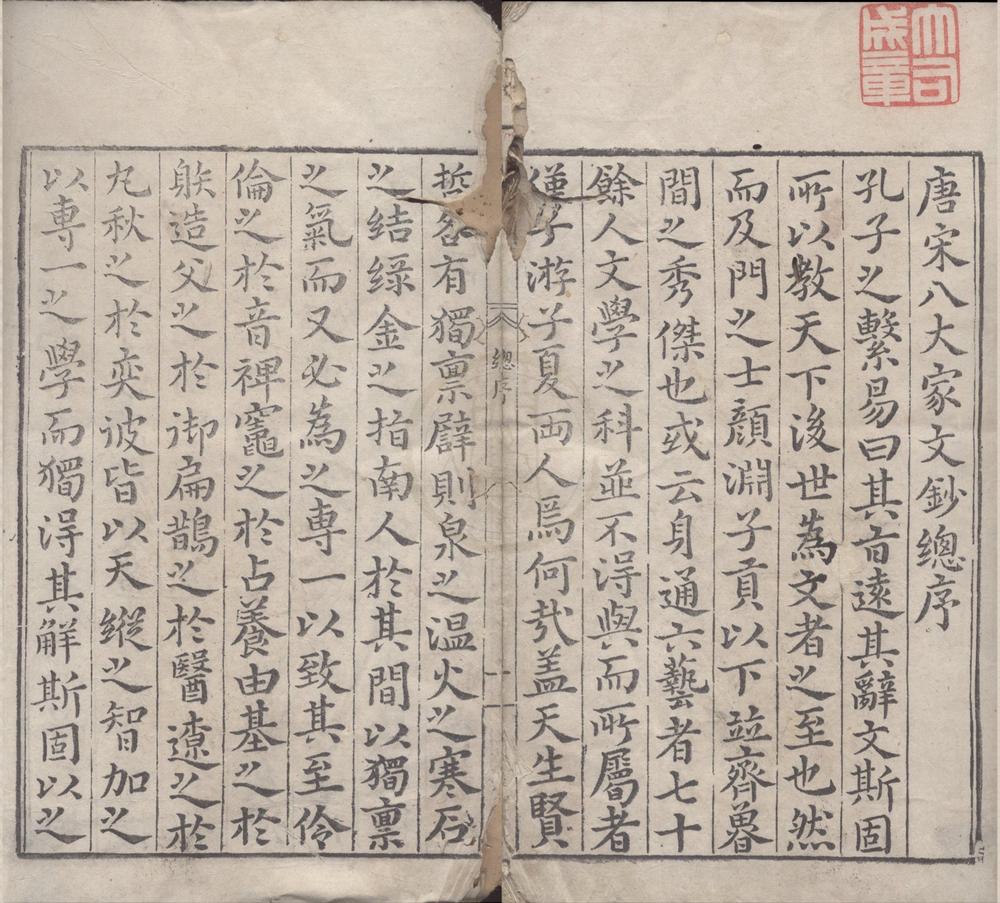 唐宋八大家文鈔總序
孔子之繫易曰其旨遠其辭文斯固
所以敎天下後世為文者之至也然
而及門之士顏淵子貢以下並齊魯
間之秀傑也或云身通六藝者七十
餘人文學之科並不淂與而所屬者
僅子游子夏兩人焉何㢤盖天生賢
哲各有獨禀譬則泉之温火之寒石
之结绿金之指南人於其間以獨禀
之氣而又必為之専一以致其至伶
倫之於音禆竈之於占養由基之於
射造父之於御扁鵲之於醫遼之於
丸秋之於奕彼皆以天縱之智加之
以専一之學而獨淂其解斯固以之
總序
一
大司成章